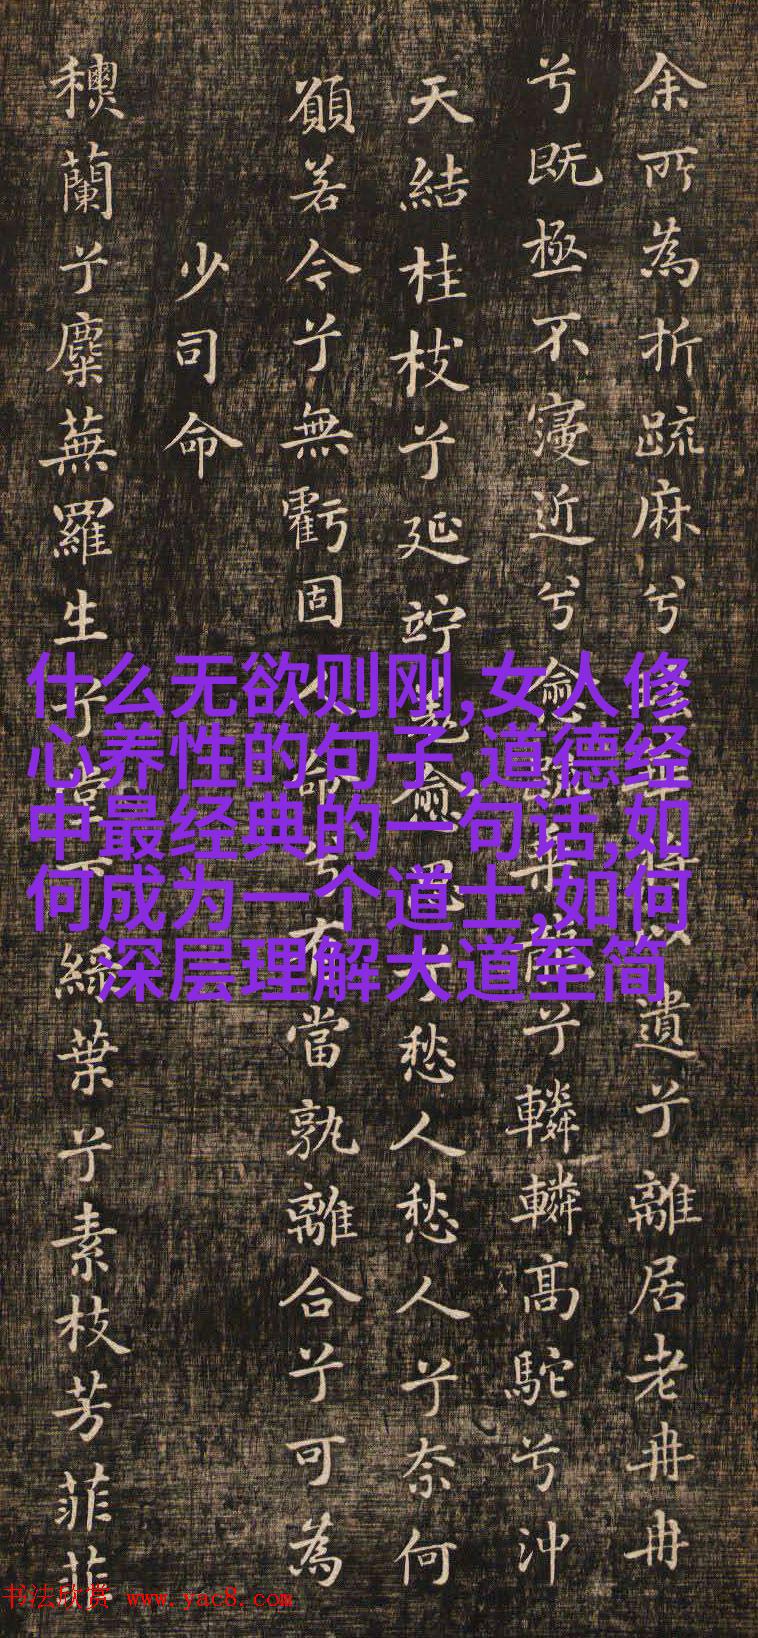 余所為折疏麻兮瑤華將以遺兮離居老冉冉
兮既極不寖近兮愈疏乘龍兮轔轔高駝兮沖
天結桂枝兮延竚羌愈思兮愁人愁人兮奈何
願若今兮無虧固人命兮有當孰離合兮可為
少司命
蘭兮麋蕪羅生兮堂下綠葉兮素枝芳菲菲
什么无欲则刚,女人修
心养性的句子,道德经
中最经典的一句话,如
何成为一个道士,如何
深层理解大道至简
书法欣赏 www.yac8.com